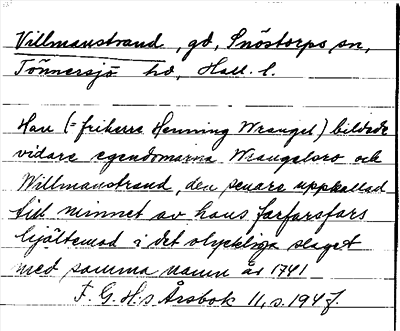 Villmanstrand, gd, Snöstorps sn,
Tönnersjö hd, Hall. l.
Han (= friherre Henning Wrangel) bildade
vidare egendomarna Wrangelsro och
Willmanstrand, den senare uppkallad
till minnet av hans farfarsfars
hjältemod i det olyckliga slaget
med samma namn år 1741
F. G. H:s Årsbok 11, s. 194 f.